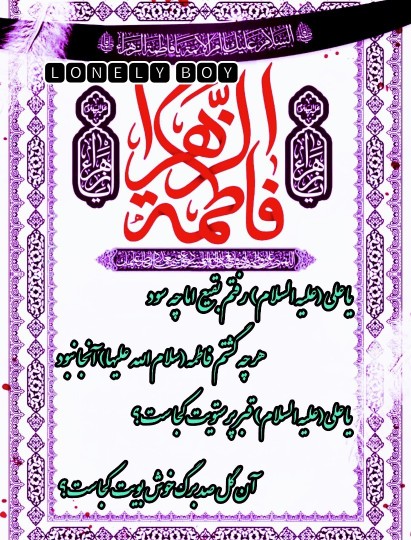 السلام علیک یا أم الأئمة یا فاطمة الزهرا
LONELY BOY
فاطمة الزهرا
یا زهراء
یا زهراء
یاعلی (علیه السلام) رفتم بقیع اما چه سود
هر چه گشتم فاطمه (سلام الله علیها) آنجا نبود
یاعلی (علیه السلام) قبر پرستویت کجاست؟
آن گل صد برگ خوش بویت کجاست؟